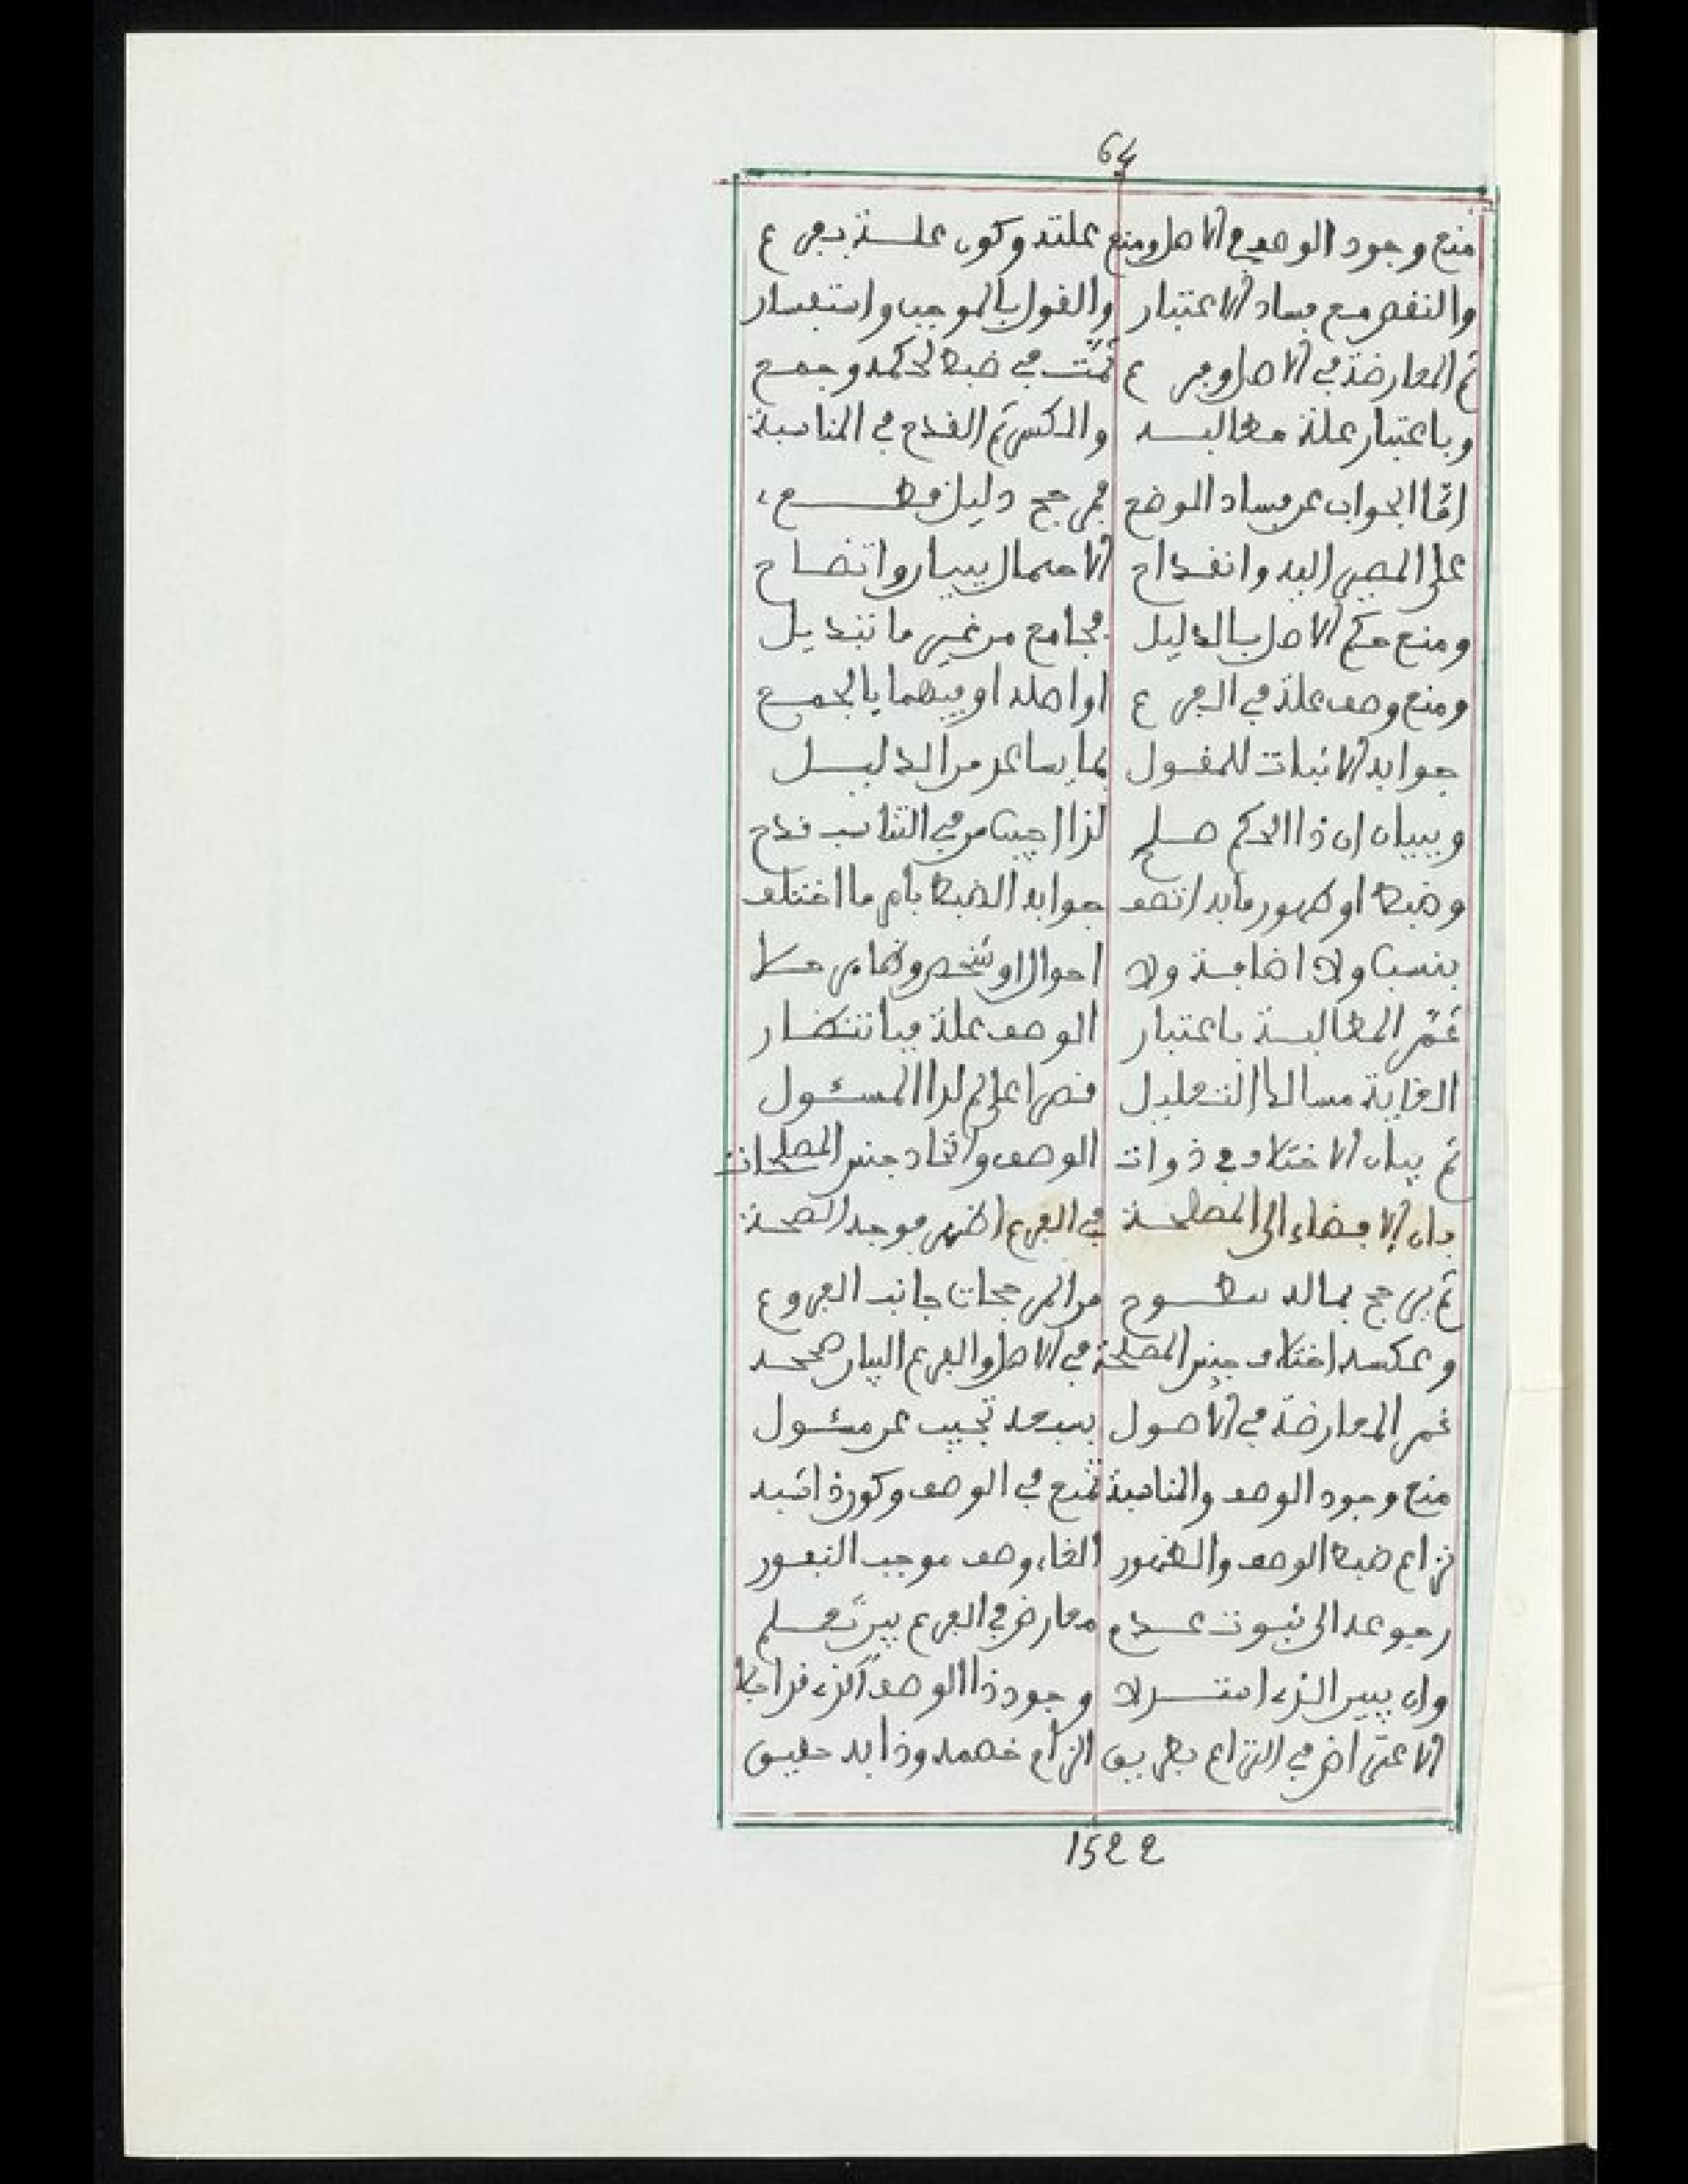 64
منع وجود الوصف في الاصل ومنع علته وكون علة بفرع
والنقض مع فساد الاعتبار والقول بالموجب واستفسار
ثم المعارضة في الاصل وفرع تمت في ضبط لحكمه وجمع
وباعتبار علة مطالبه والعكس ثم القدح في المناسبة
امّا الجواب عن فساد الموضع دليل قطع
على المصير اليه وانقداح الاحتمال ببيان واتضاح
ومنع حكم الاصل بالدليل مجامع من غير ما تبديل
ومنع وصف علة في الفرع او اصله او فيهما بالجمع
جوابه الاثبات للمقول بما يساعد من الدليل
وببيان ان ذا الحكم صلح لذا اجيب من في التناسب قدح
وضبط او ظهور ما به اتصف جوابه الضبط بأم ما اختلف
بنسب ولا اضافة ولا احوال او شخص
عن المطالبة باعتبار الوصف علة
الغاية مسالك التعليل قصرا على لذا المسئول
ثم بيان الاختلاف في ذوات الوصف واتحاد جنس المصلحات
بان الافضاء الى المصلحة في الفرع اظهر فوجه الصحة
ثم يرجح بما له سطوح من المرجحات جانب الفروع
وعكسه اختلاف جنس المصلحة في الاصل والفرع البيان صححه
عن المعارضة في الاصول بسبعة تجيب عن مسئول
منع وجود الوصف والمناسبة تمنع في الوصف وكون ذا شبه
نزاع ضبط الوصف والظهور الغاء وصف موجب النفور
رجوعه الى ثبوت عدم معارض في الفرع بين تعلم
وان يبين الذي استدلا وجود ذا الوصف الذي قد اجلا
الاعتراض في النزاع بطريق الزام خصمه وذا به حقيق
1522